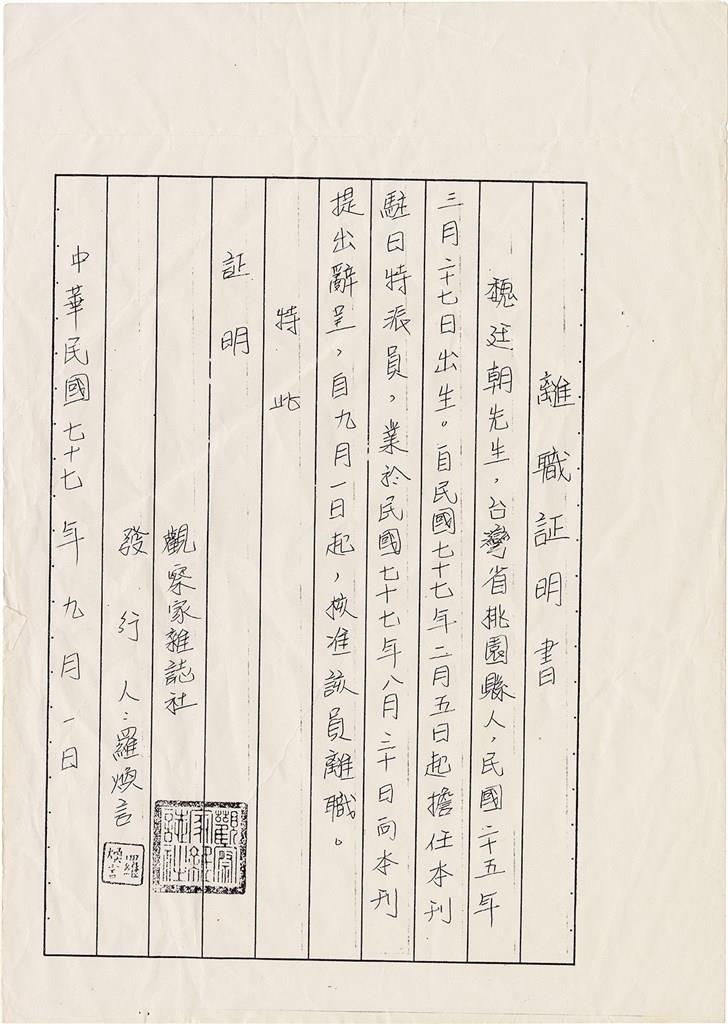 離職証明書
魏廷朝先生，台灣省桃園縣人，民國二十五年
三月二十七日出生。自民國七十七年二月五日起擔任本刊
駐日特派員，業於民國七十七年八月二十日向本刊
提出辭呈，自九月一日起，核准該員離職。
特此
証明
觀察家雜誌社
發行人：羅煥言
中華民國七十七年九月一日